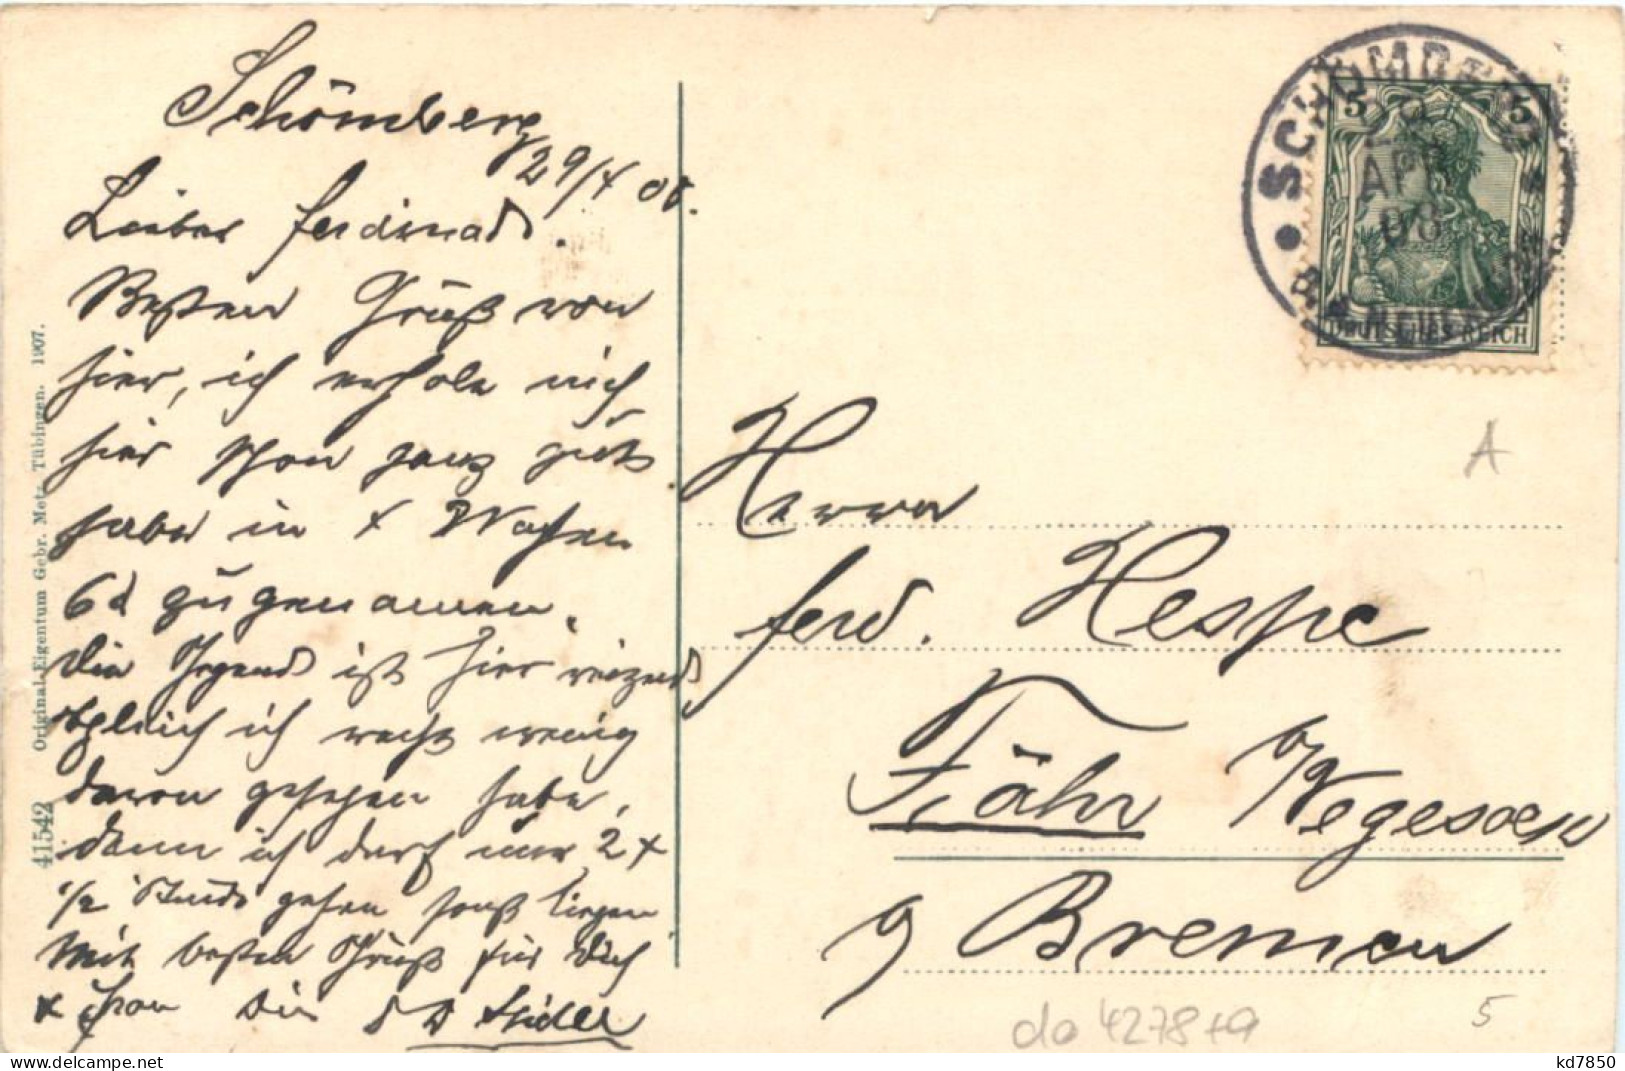 Schömberg
29/4 08.
Lieber Ferdinand.
Besten Gruß von
hier, ich erhole mich
hier schon ganz gut
habe in 4 Wochen
6 d zugenommen.
Die Gegend ist hier reizend
obgleich ich recht wenig
davon gesehen habe,
denn ich darf nur 2 x
1/2 Stunde gehen sonst liegen
Mit besten Gruß für Dich
+ Frau Dein
Original-Eigentum Gebr. Metz, Tübingen. 1907.
41542
SCHÖMBERG
29
APR
08
B. NEUENBÜRG
5 5
DEUTSCHES REICH
A
Herrn
Ferd. Hespe
Fähr b/Vegesack
Bremen
do 4278+9
5
kd7850